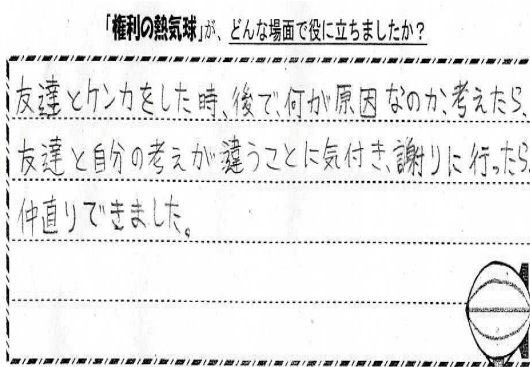 「権利の熱気球」が、どんな場面で役に立ちましたか？
友達とケンカをした時、後で、何が原因なのか、考えたら、
友達と自分の考えが違うことに気付き、謝りに行ったら、
仲直りできました。